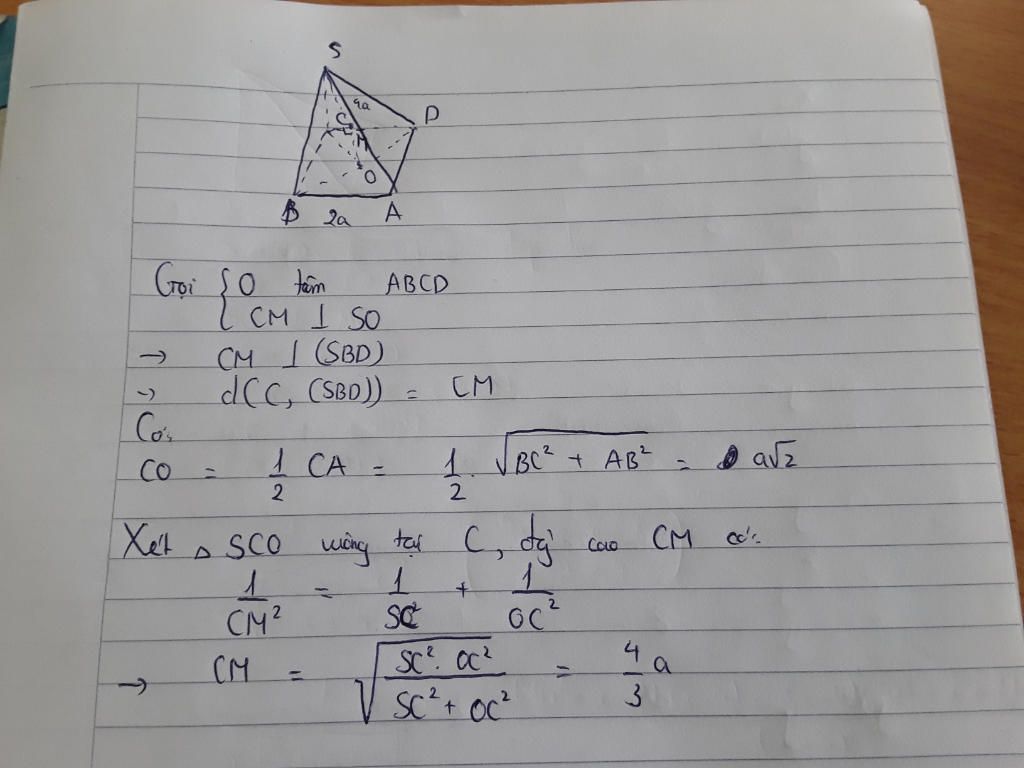 S
4a
C
D
M
O
B 2a A
Gọi { O tâm ABCD
CM ⊥ SO
→ CM ⊥ (SBD)
→ d(C, (SBD)) = CM
Có:
CO = 1/2 CA = 1/2 . √(BC² + AB²) = a√2
Xét △ SCO vuông tại C, đg cao CM có:
1/CM² = 1/SC² + 1/OC²
→ CM = √(SC² . OC² / SC² + OC²) = 4/3 a